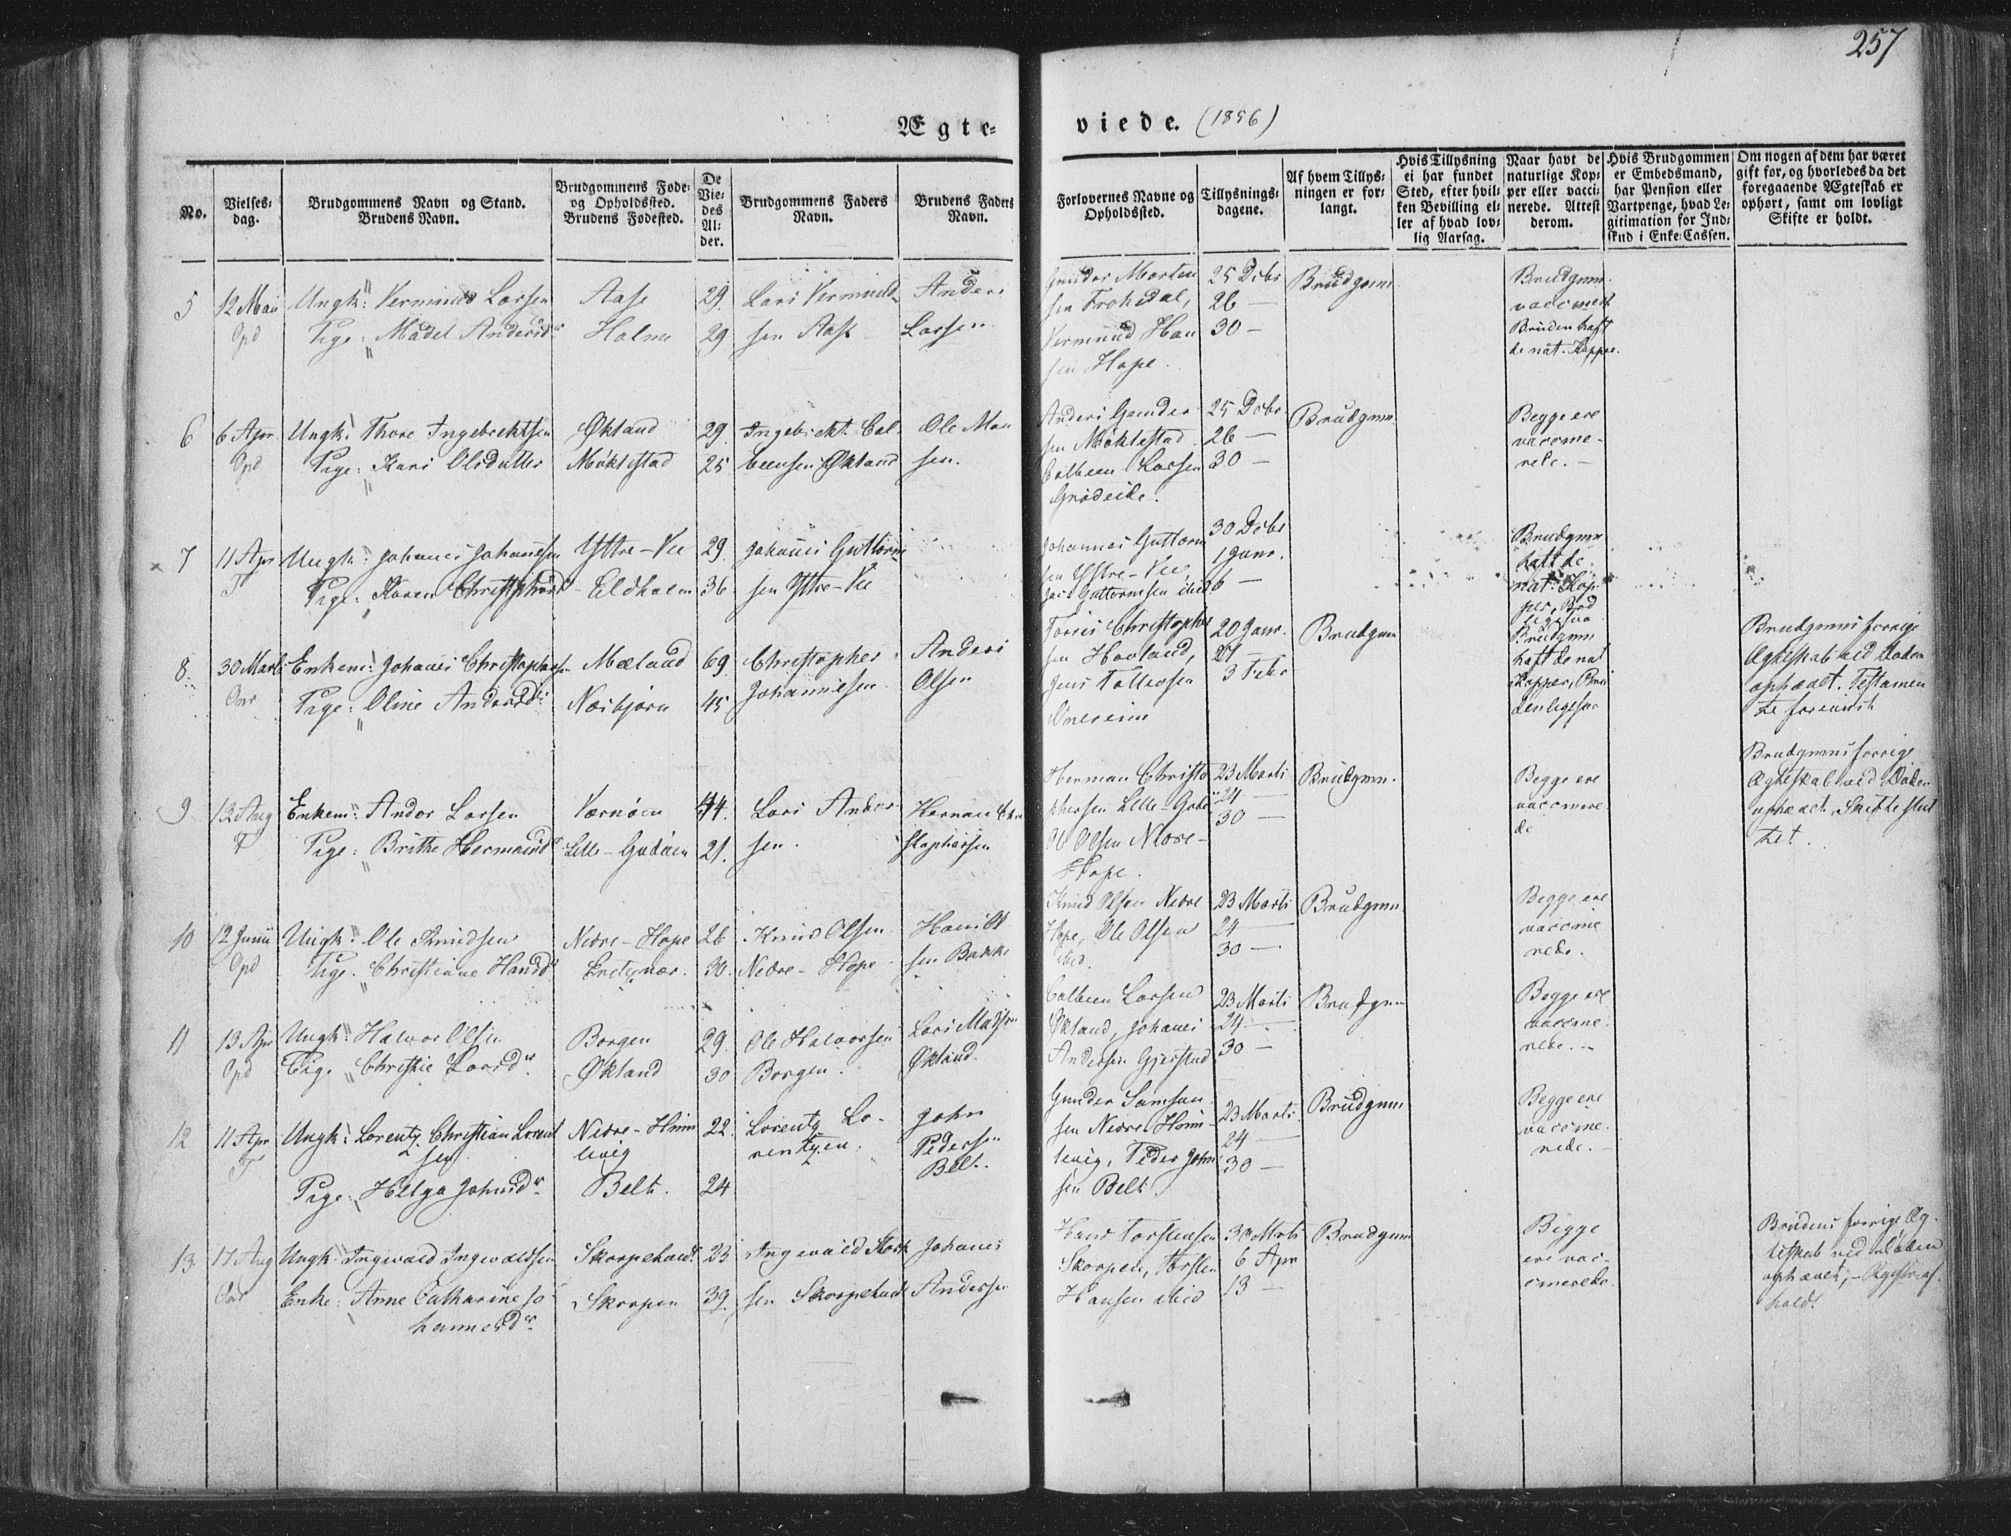 257
Ægte-
viede. (1856)
No.
Vielses-
dag.
Brudgommens Navn og Stand.
Brudens Navn.
Brudgommens Føde-
og Opholdssted.
Brudens Fødested.
De
Vie-
des
Al-
der.
Brudgommens Faders
Navn.
Brudens Faders
Navn.
Forlovernes Navne og
Opholdssted.
Tillysnings-
dagene.
Af hvem Tillys-
ningen er for-
langt.
Hvis Tillysning
ei har fundet
Sted, efter hvil-
ken Bevilling el-
ler af hvad lov-
lig Aarsag.
Naar havt de
naturlige Kop-
per eller vacci-
nerede. Attest
derom.
Hvis Brudgommen
er Embedsmand,
har Pension eller
Vartpenge, hvad Le-
gitimation for Ind-
skud i Enke-Cassen.
Om nogen af dem har været
gift før, og hvorledes da det
foregaaende Ægteskab er
ophørt, samt om lovligt
Skifte er holdt.
5
12 Mai
Opd
Ungk: Vermund Larsen
Pige: Madel Andersdr
Aase
Holme
29
29
Lars Vermund-
sen Aase
Anders
Larsen
Gunder Morten
sen Trohedal,
Vermund Han
sen Hope.
25 Dcbr
26 —
30 —
Brudgom
Brudgmn.
vaccinert
Bruden haft
de nat. Kopper.
6
6 Apr
Opd
Ungk: Thore Ingebrektsen
Pige: Kari Olsdatter
Økland
Møklestad
29
25
Ingebrekt Col-
beensen Økland
Ole Mon
sen.
Anders Gunder
sen Møklestad
Colbeen Larsen
Grødeide.
25 Dcbr
26 —
30 —
Brudgmn.
Begge ere
vaccine-
rede. —
7
11 Apr
T
Ungk: Johanes Johannesen
Pige: Karen Christophersdr
Yttre-Vee
Eldholm
29
36
Johanes Guttorm
sen Yttre-Vie
Johannes Guttorm
sen Yttre-Vie,
Jacob Guttormsen ibid
30 Dcbr
1 Janr.
6 —
Brudgmn
haft de
nat. Kop-
per, Brd
ligesaa
8
30 Marti
Onr
Enkem: Johanes Christophersen
Pige: Oline Andersdr
Mæland
Næsbjørn
69
45
Christopher
Johannesen
Anders
Olsen
Torres Christopher
sen Hovland,
Jens Tollevsen
20 Janr.
27 —
3 Febr
Brudgmn
Brudgmn
haft de nat
Kopper, Bru
den ligesaa
Brudgmns forrige
Ægteskab ved Døden
ophævet. Testamen
te forevist
9
13 Aug
T
Enkem: Andor Larsen
Pige: Brithe Hermandsdr
Værnøen
Lille-Godøen
44
21.
Lars Andor
sen.
Herman Chri
stophersen
Herman Christo
phersen Lille-Godø
Ole Olsen Nedre-
Hope.
23 Marti
24 —
30 —
Brudgmn.
Begge ere
vaccinere
de
Brudgmns forrige
Ægteskab ved Døden
ophævet, Skifte slut
tet.
10
12 Junii
Opd
Ungk: Ole Knudsen
Pige: Christiane Hansdr
Nedre-Hope
26
30
Knud Olsen
Nedre-Hope
sen Bakke
Knud Olsen Nedre
Hope, Ole Olsen
ibid.
23 Marti
24 —
30 —
Brudgmn
Begge ere
vaccine
rede.
11
13 Apr
Opd
Ungk: Halvor Olsen
Pige Christie Larsdr
Borgen
Økland
29.
30
Ole Halvorsen
Borgen.
Lars Madsen
Økland.
Colbeen Larsen
Økland, Johanes
Andersen Gjerstad
23 Marti
24 —
30 —
Brudgmn
Begge ere
vaccine-
rede. —
12
11 Apr
T
Ungk: Lorentz Christian Lorent
sen
Pige: Helga Johnsdr
Nedre-Him
levig
Belt.
22
24
Lorentz Lo-
rentzen.
John
Pedersen
Belt.
Gunder Samson
sen Nedre Him-
levig, Peder John
sen Belt
23 Marti
24 —
30 —
Brudgmn
Begge ere
vaccine-
rede. —
13
17 Aug
Onr
Ungk: Ingvald Ingvaldsen
Enke: Anne Cathrine Jo
hannesdr
Skorpeholt
Skorpen
33
39
Ingvald
sen Skorpeholt
Johanes
Andersen
Hans Torstensen
Skorpen, Torsten
Hansen ibid
30 Marti
6 Apr
13 —
Brudgmn
Begge
ere vac-
cinerede.
Brudens forrige Æg-
teskab ved Døden
ophævet, —
holdt